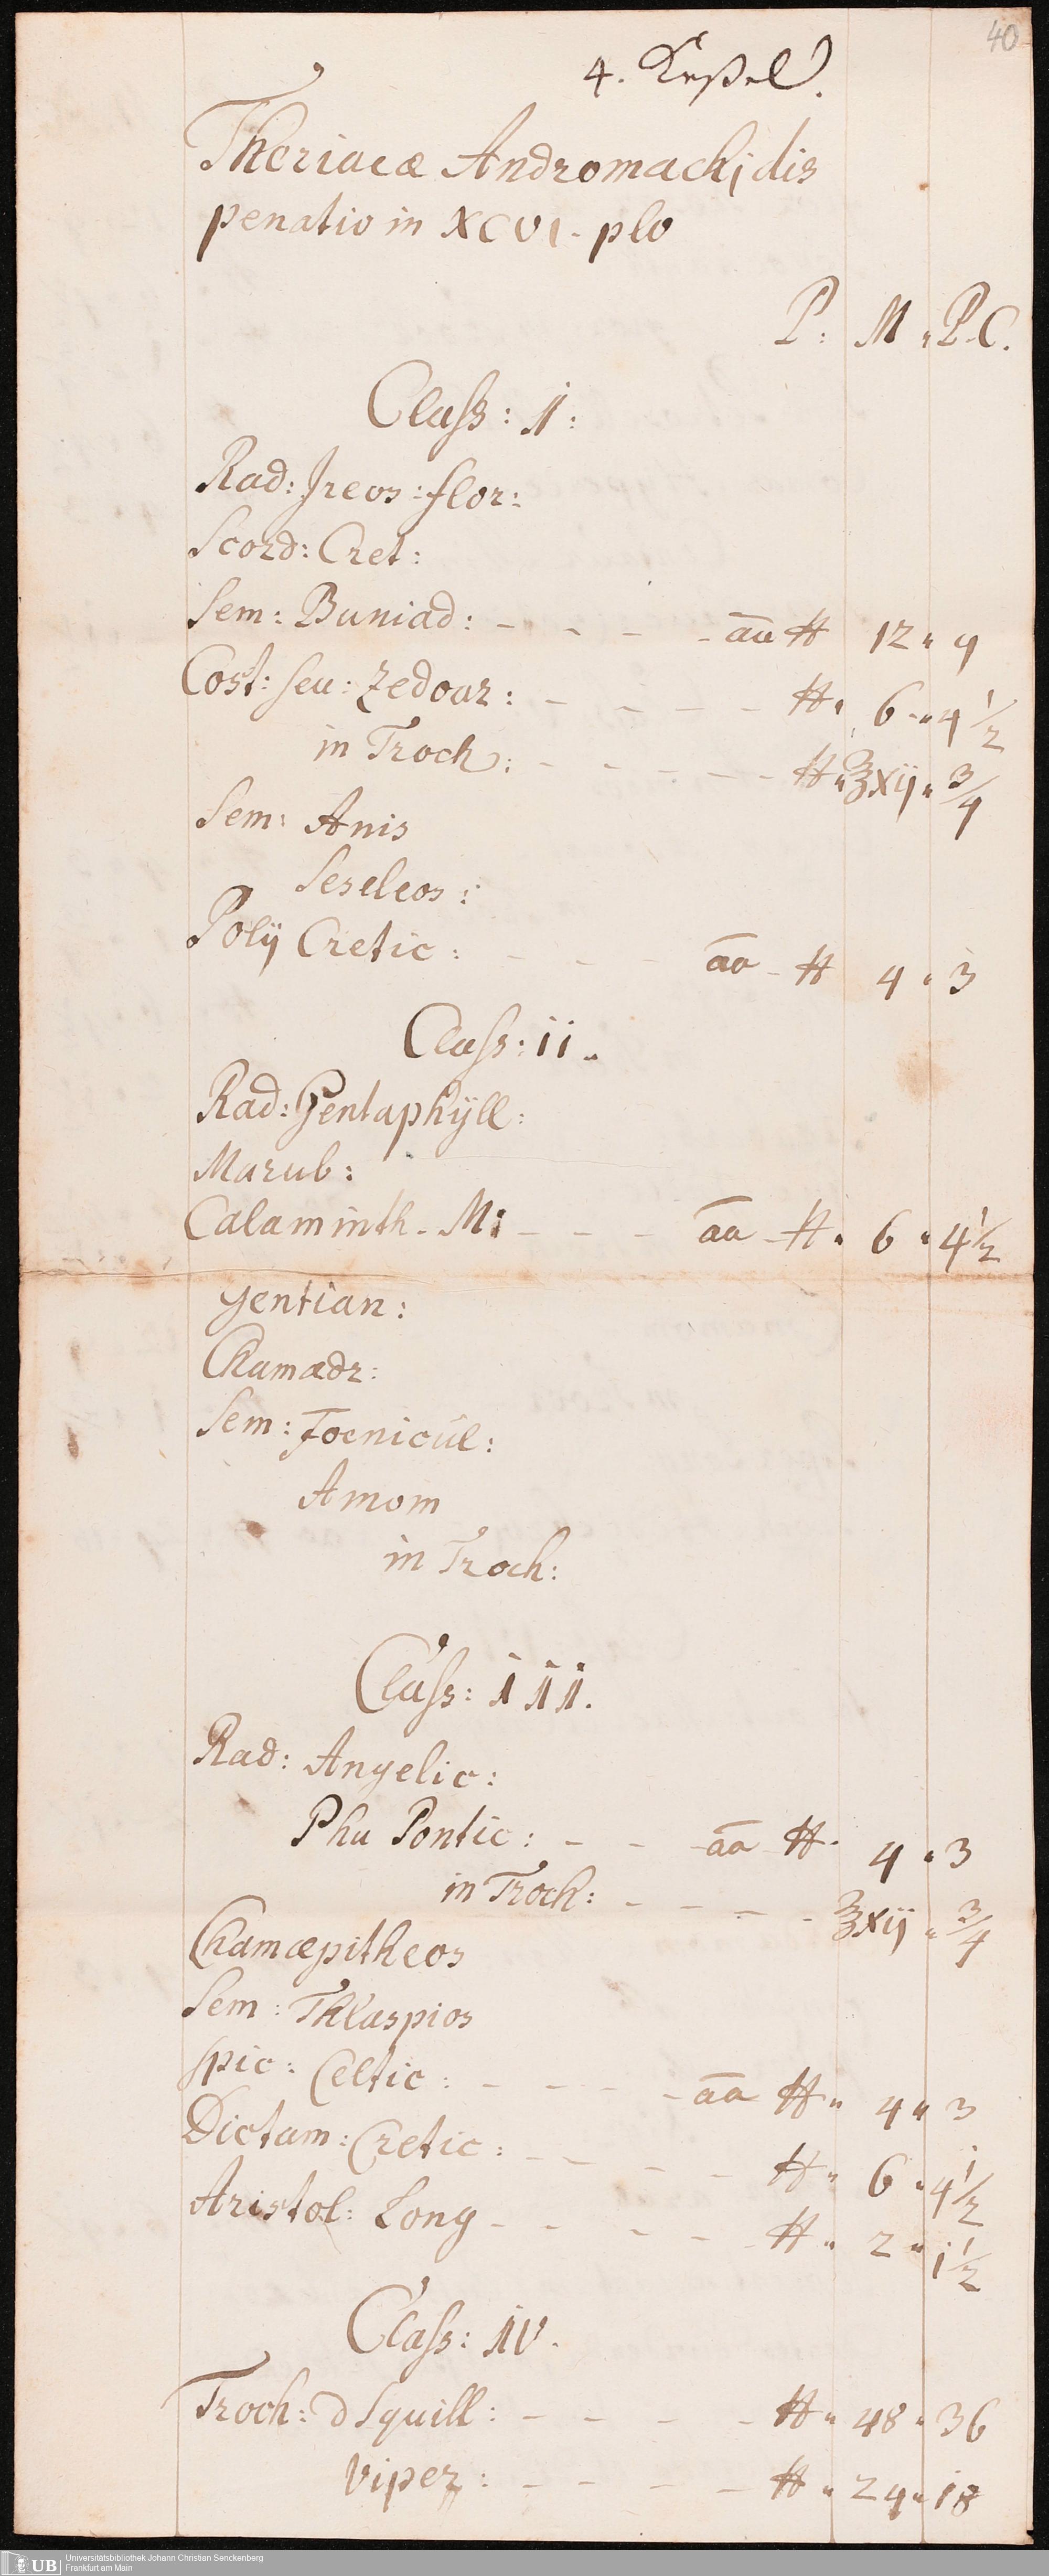 40
4. Keßel.
Theriacæ Andromachi dis
penatio in XCVI. plo
P: M „ P. C.
Class: I:
Rad: Ireos: flor:
Scord: Cret:
Sem: Buniad: - - - - aa ℔ 12 „ 9
Cost: seu: Zedoar: - - - - ℔ „ 6 „ 4 1/2
in Troch: - - - - - ℔ „ ℥xij „ 3/4
Sem: Anis
Seseleos:
Polij Cretic: - - - aa - ℔ 4 „ 3
Class: ii „
Rad: Pentaphÿll:
Marub:
Calaminth. M: - - - aa - ℔ „ 6 „ 4 1/2
gentian:
Chamædr:
Sem: Foenicul:
Amom
in Troch:
Class: iii.
Rad: Angelic:
Phu Pontic: - - - aa - ℔ 4 „ 3
in Troch: - - - - ℥xij „ 3/4
Chamæpitheos
Sem: Thlaspios
Spic: Celtic: - - - - aa ℔ „ 4 „ 3
Dictam: Cretic: - - - - ℔ „ 6 „ 4 1/2
Aristol: Long - - - - ℔ „ 2 „ i 1/2
Class: iv.
Troch: d Squill: - - - - ℔ „ 48 „ 36
Viper: - - - - ℔ „ 24 „ i8
UB
Universitätsbibliothek Johann Christian Senckenberg
Frankfurt am Main